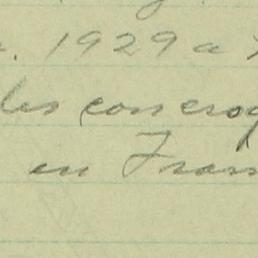 . 1929 a
les conserv
en Fran